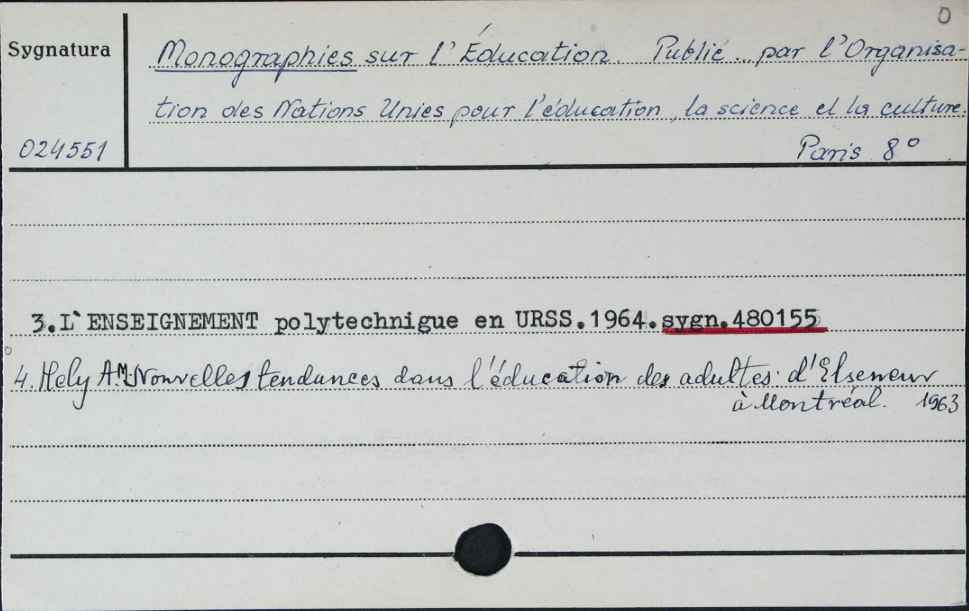 0
Sygnatura
Monographies sur l'Éducation. Publié par l'Organisa-
tion des Nations Unies pour l'éducation, la science et la culture.
024551
Paris 8°
3.L`ENSEIGNEMENT polytechnigue en URSS.1964.sygn.480155
4. Hely A.M. Nouvelles tendances dans l'éducation des adultes: d'Elseneur
à Montréal. 1963